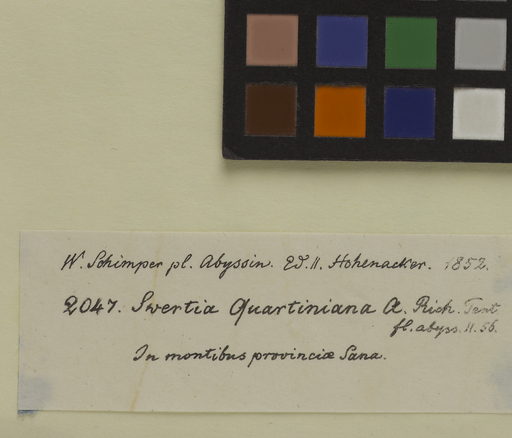 W. Schimper pl. Abyssin. Ed. II. Hohenacker. 1852.
2047. Swertia Quartiniana A. Rich. Tent
fl. abyss. II. 56.
In montibus provinciæ Sana.